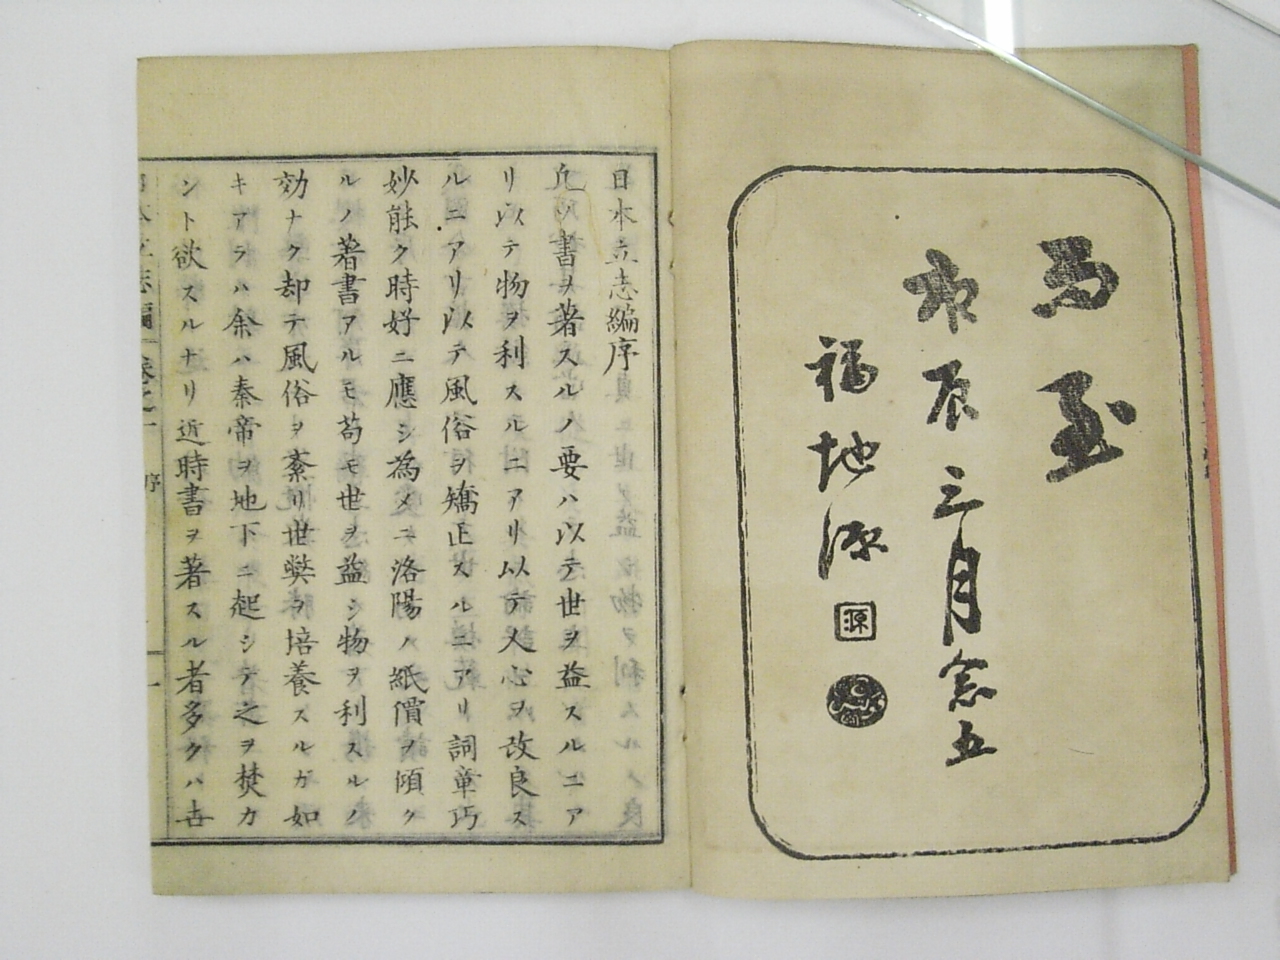 為量
庚辰三月念五
福地源
源
日本立志編序
凡ソ書ヲ著スルノ要ハ以テ世ヲ益スルニア
リ以テ物ヲ利スルニアリ以テ人心ヲ改良ス
ルニアリ以テ風俗ヲ矯正スルニアリ詞章巧
妙能ク時好ニ應シ為メニ洛陽ノ紙價ヲ傾ク
ルノ著書アルモ苟モ世ヲ益シ物ヲ利スルノ
効ナク却テ風俗ヲ紊リ世弊ヲ培養スルガ如
キアラハ余ハ秦帝ヲ地下ニ起シテ之ヲ焚カ
ント欲スルナリ近時書ヲ著スル者多クハ古
日本立志編 卷之一 序 一